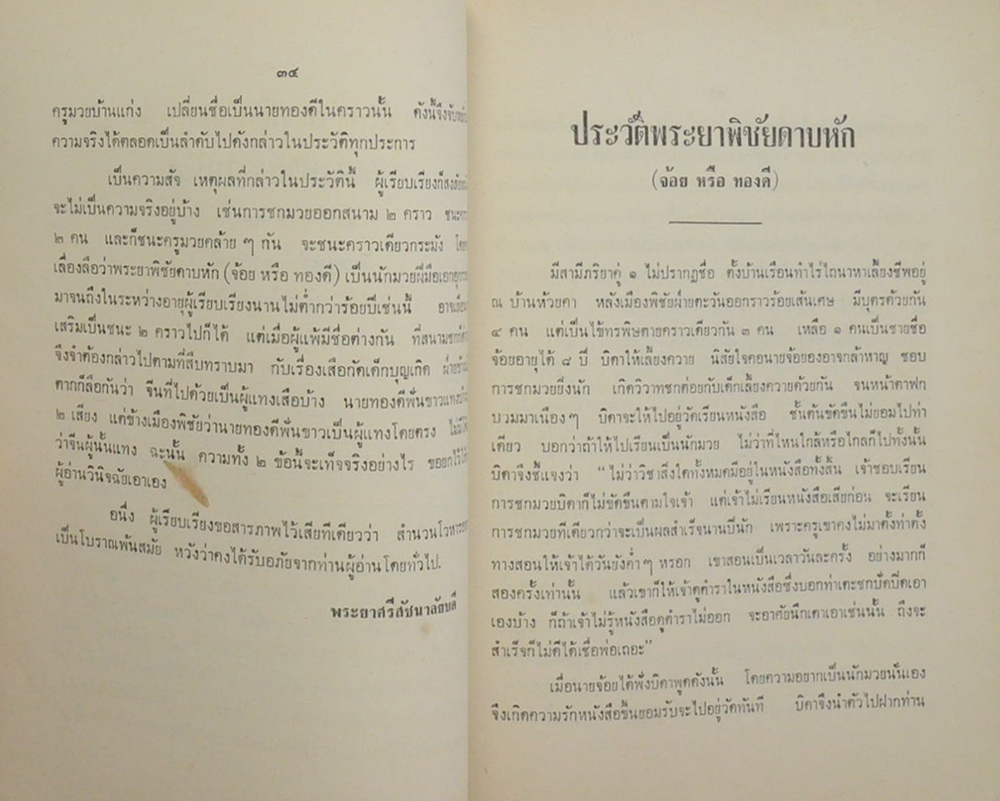 ๓๔
ครูมวยบ้านแก่ง เปลี่ยนชื่อเป็นนายทองดีในคราวนั้น ดังนี้จึงจับ
ความจริงได้ตลอดเป็นลำดับไปดังกล่าวในประวัติทุกประการ
เป็นความสัจ เหตุผลที่กล่าวในประวัตินี้ ผู้เรียบเรียงก็สงสัย
จะไม่เป็นความจริงอยู่บ้าง เช่นการชกมวยออกสนาม ๒ คราว ชนะ
๒ คน และก็ชนะครูมวยคล้าย ๆ กัน จะชนะคราวเดียวกระมัง โดย
เลื่องลือว่าพระยาพิชัยดาบหัก (จ้อย หรือ ทองดี) เป็นนักมวยฝีมือเอก
มาจนถึงในระหว่างอายุผู้เรียบเรียงนานไม่ต่ำกว่าร้อยปีเช่นนี้ อาจ
เสริมเป็นชนะ ๒ คราวไปก็ได้ แต่เมื่อผู้แพ้มีชื่อต่างกัน ที่สนามชก
จึงจำต้องกล่าวไปตามที่สืบทราบมา กับเรื่องเสือกัดเด็กบุญเกิด ฝ่ายข้าง
ตากก็ลือกันว่า จีนที่ไปด้วยเป็นผู้แทงเสือบ้าง นายทองดีฟันขาวแทงบ้าง
๒ เสียง แต่ข้างเมืองพิชัยว่านายทองดีฟันขาวเป็นผู้แทงโดยตรง ไม่
ว่าจีนผู้นั้นแทง ฉะนั้น ความทั้ง ๒ ข้อนี้จะเท็จจริงอย่างไร ขอยกไว้ให้
ผู้อ่านวินิจฉัยเอาเอง
อนึ่ง ผู้เรียบเรียงขอสารภาพไว้เสียทีเดียวว่า สำนวนโวหาร
เป็นโบราณพ้นสมัย หวังว่าคงได้รับอภัยจากท่านผู้อ่านโดยทั่วไป.
พระยาศรีสัชนาลัยบดี
ประวัติพระยาพิชัยดาบหัก
(จ้อย หรือ ทองดี)
มีสามีภริยาคู่ ๑ ไม่ปรากฏชื่อ ตั้งบ้านเรือนทำไร่ไถนาหาเลี้ยงชีพอยู่
ณ บ้านห้วยคา หลังเมืองพิชัยฝ่ายตะวันออกราวร้อยเส้นเศษ มีบุตรด้วยกัน
๔ คน แต่เป็นไข้ทรพิษตายคราวเดียวกัน ๓ คน เหลือ ๑ คนเป็นชายชื่อ
จ้อยอายุได้ ๘ ปี บิดาให้เลี้ยงควาย นิสัยใจคอนายจ้อยองอาจกล้าหาญ ชอบ
การชกมวยยิ่งนัก เกิดวิวาทชกต่อยกับเด็กเลี้ยงควายด้วยกัน จนหน้าตาฟก
บวมมาเนืองๆ บิดาจะให้ไปอยู่วัดเรียนหนังสือ ชั้นต้นขัดขืนไม่ยอมไปท่า
เดียว บอกว่าถ้าให้ไปเรียนเป็นนักมวย ไม่ว่าที่ไหนใกล้หรือไกลก็ไปทั้งนั้น
บิดาจึงชี้แจงว่า “ ไม่ว่าวิชาสิ่งใดทั้งหมดมีอยู่ในหนังสือทั้งสิ้น เจ้าชอบเรียน
การชกมวยบิดาก็ไม่ขัดขืนตามใจเจ้า แต่เจ้าไม่เรียนหนังสือเสียก่อน จะเรียน
การชกมวยทีเดียวกว่าจะเป็นผลสำเร็จนานปีนัก เพราะครูเขาคงไม่มาตั้งท่าตั้ง
ทางสอนให้เจ้าได้วันยังค่ำๆ หรอก เขาสอนเป็นเวลาวันละครั้ง อย่างมากก็
สองครั้งเท่านั้น แล้วเขาก็ให้เจ้าดูตำราในหนังสือซึ่งบอกท่าเตะชกปัดปิดเอา
เองบ้าง ก็ถ้าเจ้าไม่รู้หนังสือดูตำราไม่ออก จะอาศัยนึกเดาเอาเช่นนั้น ถึงจะ
สำเร็จก็ไม่ดีได้เชื่อพ่อเถอะ”
เมื่อนายจ้อยได้ฟังบิดาพูดดังนั้น โดยความอยากเป็นนักมวยนั่นเอง
จึงเกิดความรักหนังสือขึ้นยอมรับจะไปอยู่วัดทันที บิดาจึงนำตัวไปฝากท่าน